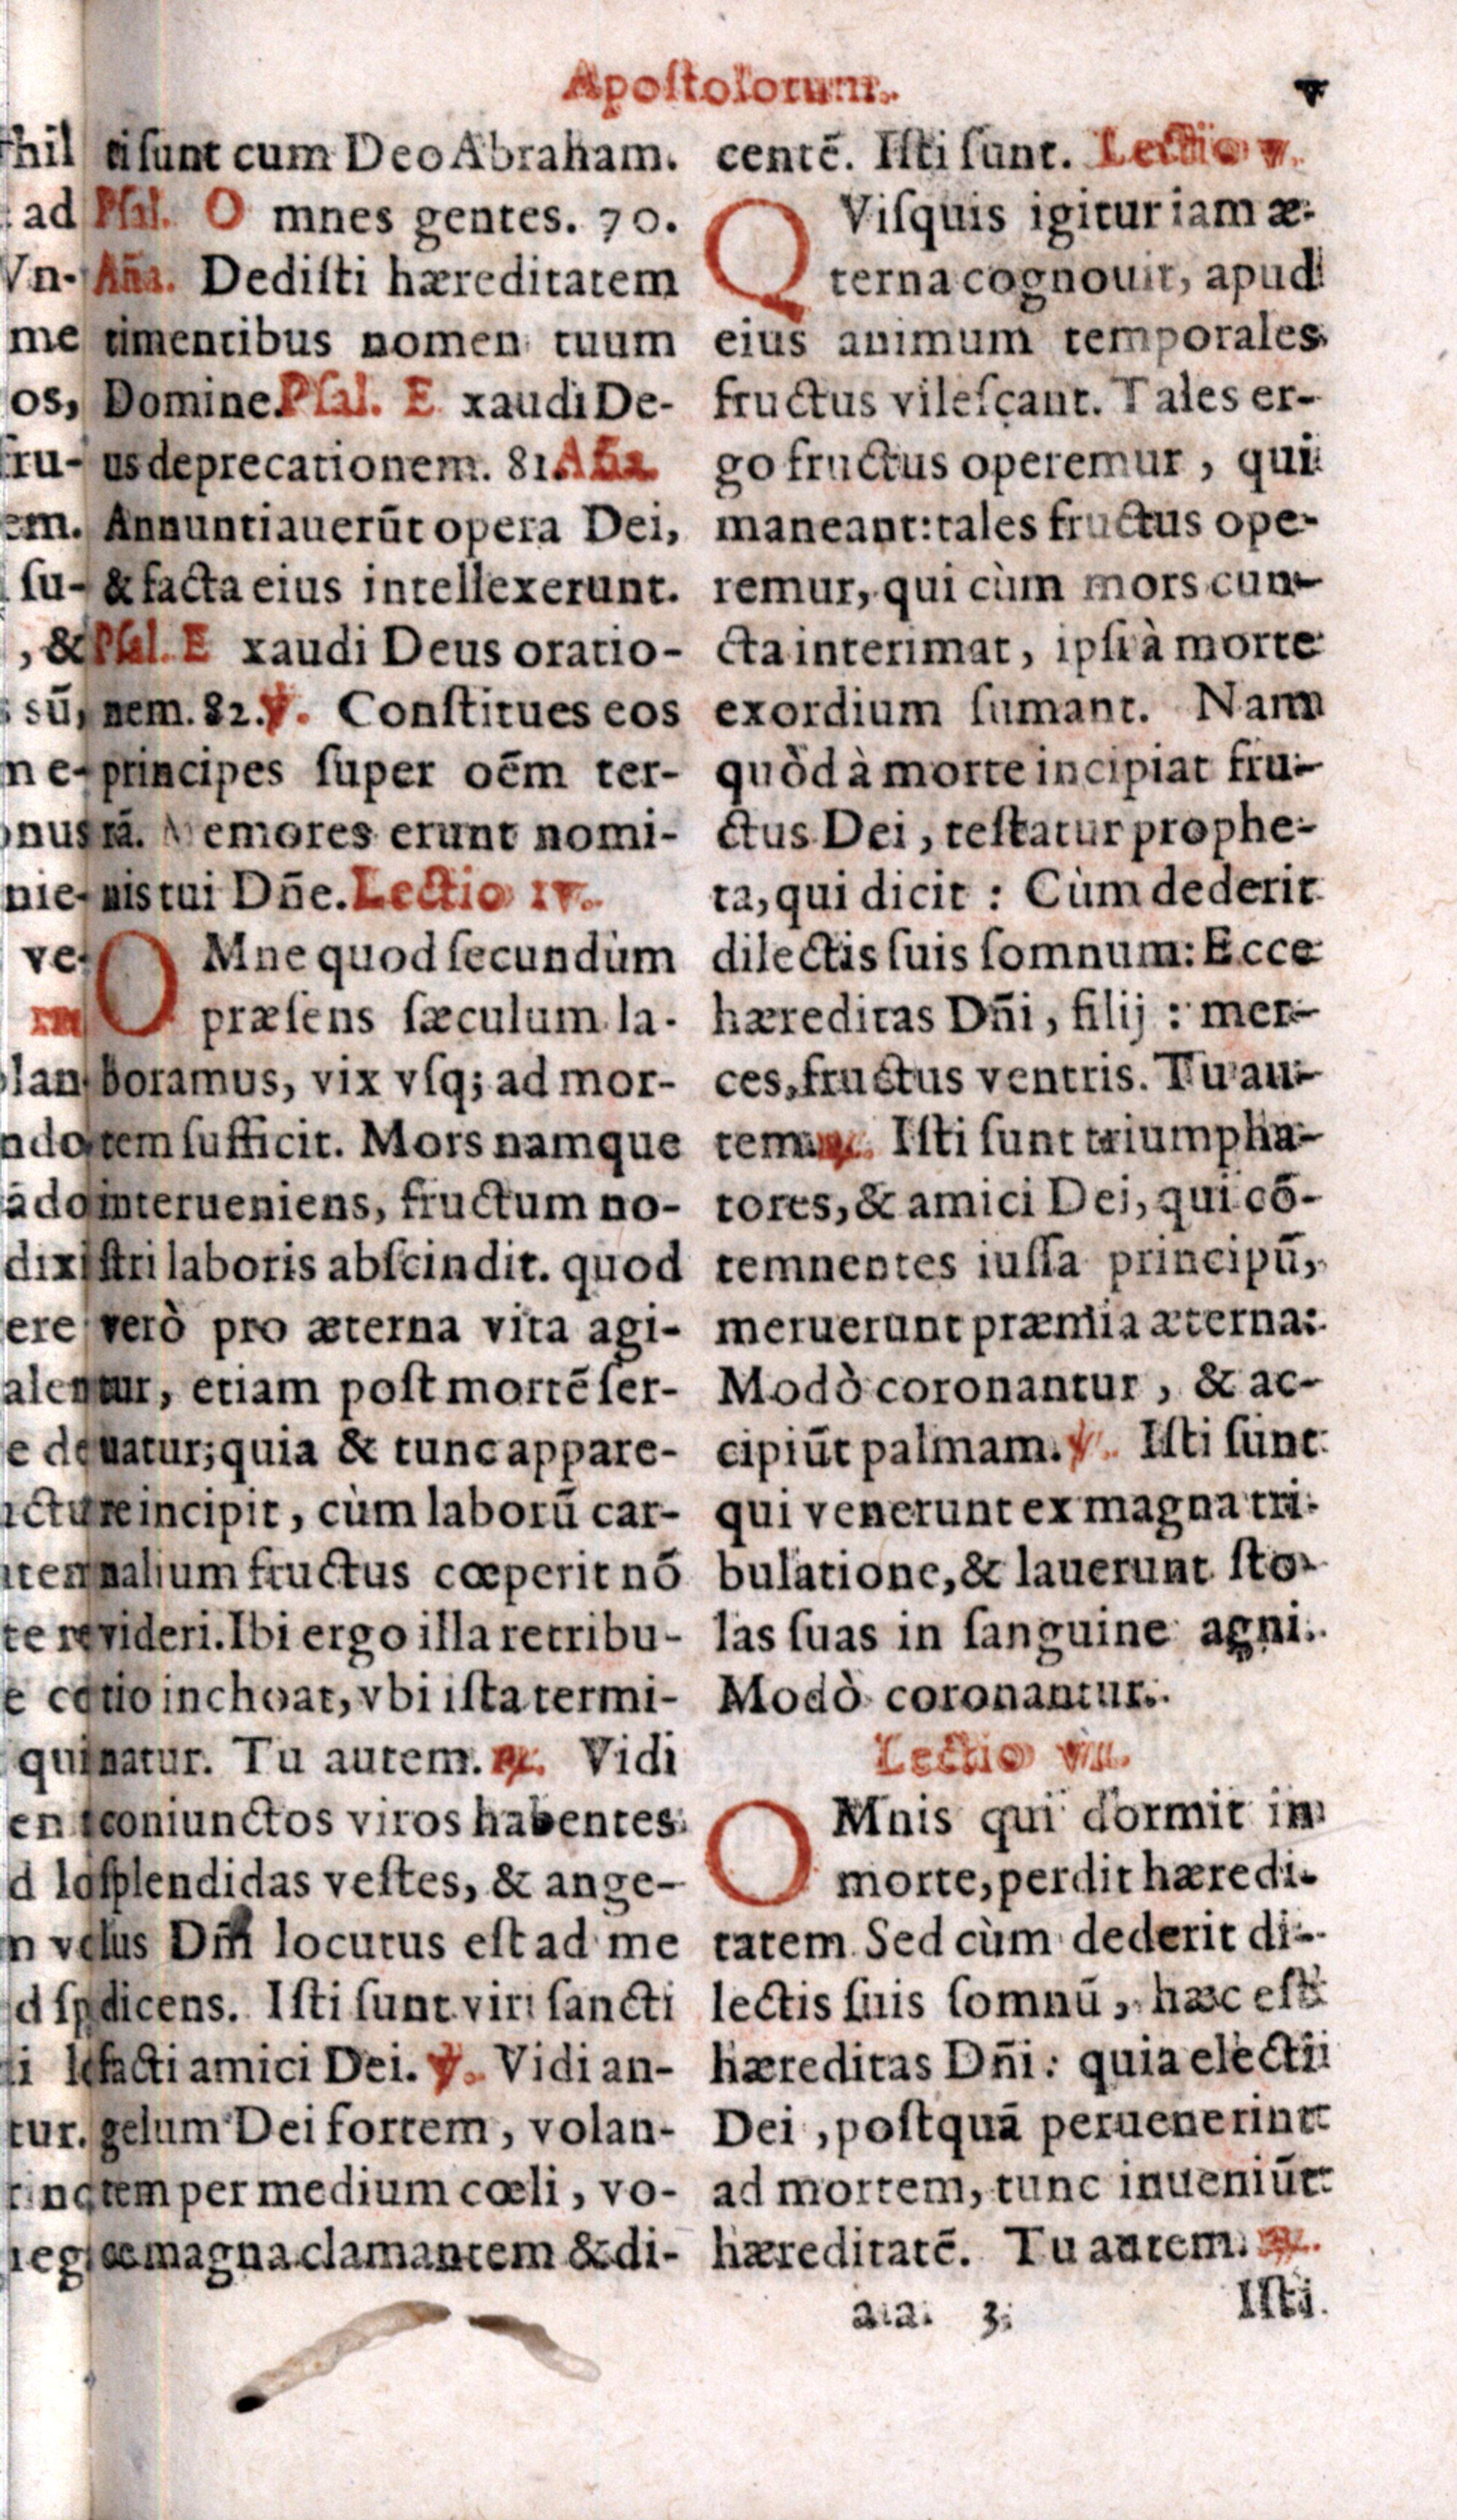 Apoſtolorum. v
ti ſunt cum Deo Abraham.
Pſal. O mnes gentes. 70.
Aña. Dediſti hæreditatem
timentibus nomen tuum
Domine. Pſal. E xaudi De-
us deprecationem. 81. Aña
Annuntiauerūt opera Dei,
& facta eius intellexerunt.
Pſal. E xaudi Deus oratio-
nem. 82. ℣. Conſtitues eos
principes ſuper oēm ter-
rā. Memores erunt nomi-
nis tui Dñe. Lectio IV.
OMne quod ſecundùm
præſens ſæculum la-
boramus, vix vſq; ad mor-
tem ſufficit. Mors namque
interueniens, fructum no-
ſtri laboris abſcindit. quod
verò pro æterna vita agi-
tur, etiam poſt mortē ſer-
uatur; quia & tunc appare-
re incipit, cùm laborū car-
nalium fructus cœperit nō
videri. Ibi ergo illa retribu-
tio inchoat, vbi iſta termi-
natur. Tu autem. ℟. Vidi
coniunctos viros habentes
ſplendidas veſtes, & ange-
lus Dñi locutus eſt ad me
dicens. Iſti ſunt viri ſancti
facti amici Dei. ℣. Vidi an-
gelum Dei fortem, volan-
tem per medium cœli, vo-
ce magna clamantem & di-
centē. Iſti ſunt. Lectio v.
QViſquis igitur iam æ-
terna cognouit, apud
eius animum temporales
fructus vileſcant. Tales er-
go fructus operemur, qui
maneant: tales fructus ope-
remur, qui cùm mors cun-
cta interimat, ipſi à morte
exordium ſumant. Nam
quòd à morte incipiat fru-
ctus Dei, teſtatur prophe-
ta, qui dicit: Cùm dederit
dilectis ſuis ſomnum: Ecce
hæreditas Dñi, filij: mer-
ces, fructus ventris. Tu au-
tem. ℟. Iſti ſunt triumpha-
tores, & amici Dei, qui cō-
temnentes iuſſa principū,
meruerunt præmia æterna:
Modò coronantur, & ac-
cipiūt palmam. ℣. Iſti ſunt
qui venerunt ex magna tri-
bulatione, & lauerunt ſto-
las ſuas in ſanguine agni.
Modò coronantur.
Lectio VI.
OMnis qui dormit in
morte, perdit hæredi-
tatem. Sed cùm dederit di-
lectis ſuis ſomnū, hæc eſt
hæreditas Dñi: quia electi
Dei, poſtquā peruenerint
ad mortem, tunc inueniūt
hæreditatē. Tu autem. ℟.
aa 3 Iſti